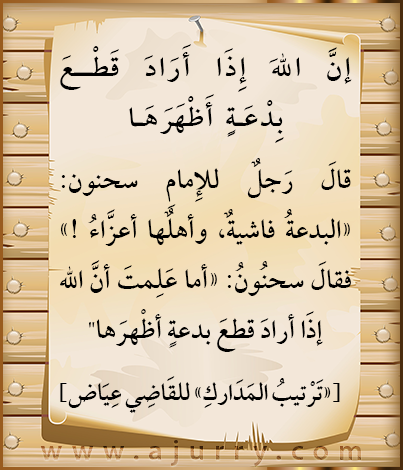 إنَّ اللهَ إِذَا أَرَادَ قَطْـعَ
بِدْعَـةٍ أَظْهَرَهَـا
قالَ رَجلٌ للإمامِ سحنون:
«البدعةُ فاشيةٌ، وأهلُها أعزَّاءُ !»
فقالَ سحنُونُ: «أما عَلِمتَ أنَّ الله
إذَا أرادَ قطعَ بدعةٍ أظْهرَها"
[«تَرْتيبُ المَدَاركِ» للقَاضِي عِيَاض]
www.ajurry.com